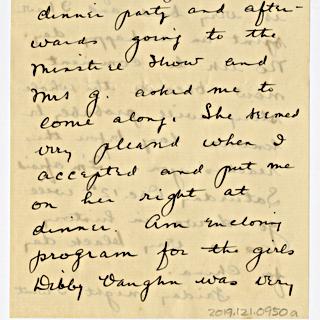 dinner party and after-
wards going to the
Minstrel Show and
Mrs G. asked me to
come along. She seemed
very pleased when I
accepted and put me
on her right at
dinner. Am enclosing
program for the girls
Dibby Vaughn was very
2019.121.0950a